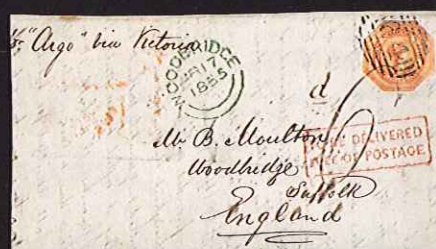 "Argo" via Victoria
WOODBRIDGE
17
1855
d
Mr. B. Moulton
Woodbridge
Suffolk
England
TO BE DELIVERED
FREE OF POSTAGE